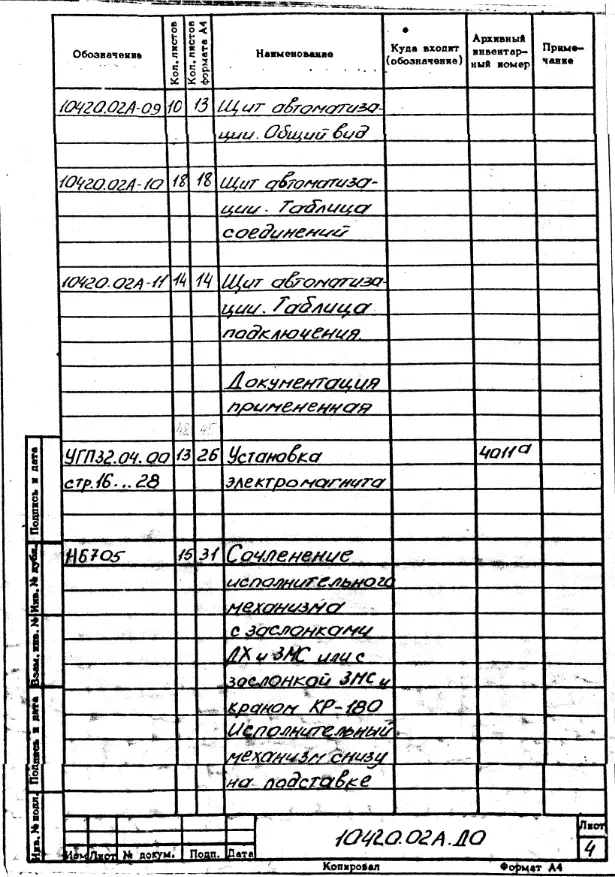 Обозначение Кол. листов Кол. листов формата А4 Наименование Куда входит (обозначение) Архивный инвентарный номер Примечание
10420.02А-09 10 13 Щит автоматиза-
ции. Общий вид
10420.02А-10 18 18 Щит автоматиза-
ции. Таблица
соединений
10420.02А-11 14 14 Щит автоматиза-
ции. Таблица
подключения.
Документация
примененная
УГП32.04.00 13 26 Установка 4011а
стр.16...28 электромагнита
НБ705 15 31 Сочленение
исполнительного
механизма
с заслонками
ДХ и ЗМС или с
заслонкой ЗМС и
краном КР-180
Исполнительный
механизм снизу
на подставке
Подпись и дата
Инв. № дубл.
Взам. инв. №
Подпись и дата
Инв. № подл.
10420.02А.ДО
Лист
4
Изм Лист № докум. Подп. Дата
Копировал Формат А4